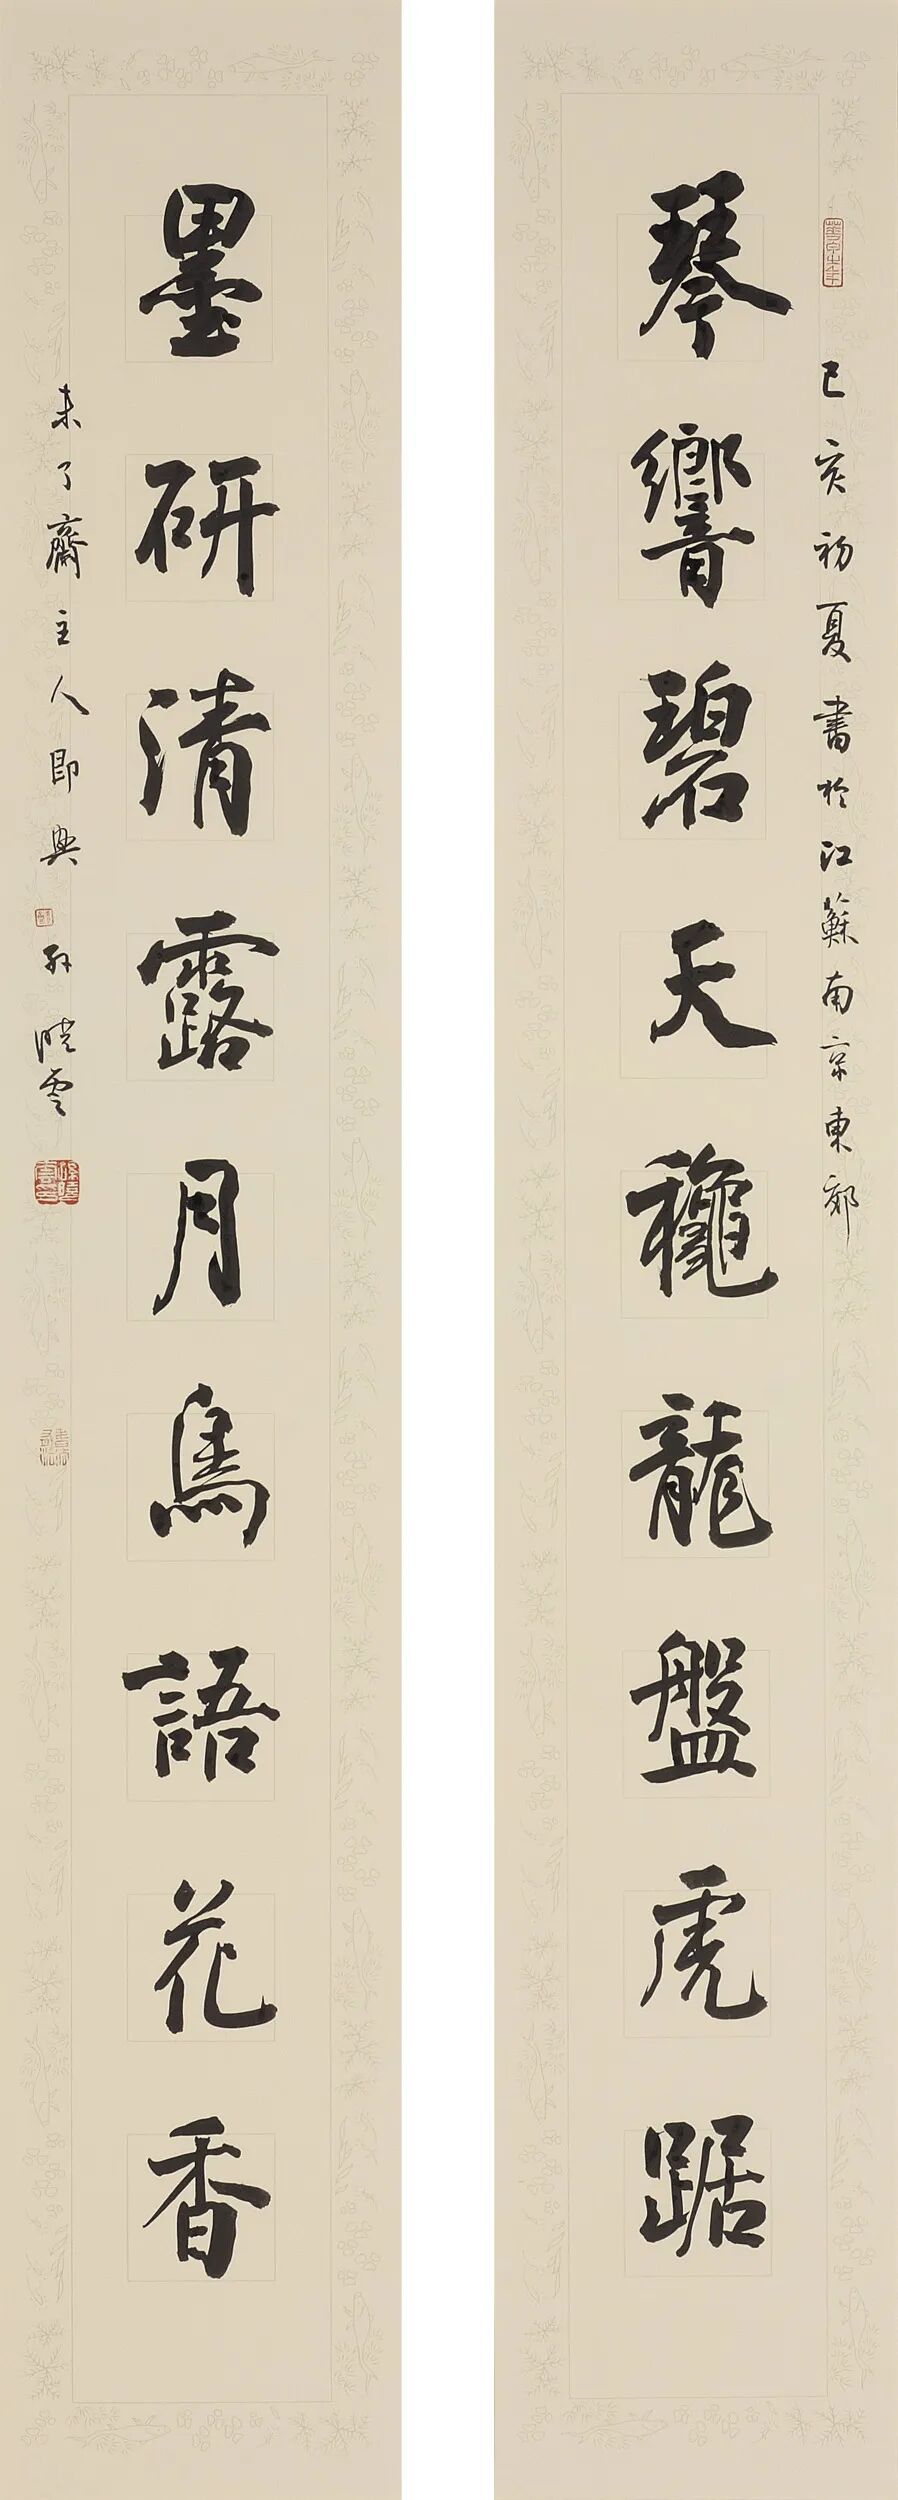 己亥初夏書於江蘇南京東郊
琴響碧天龝龍盤虎踞
墨研清露月鳥語花香
未了齋主人即興 孫曉雲